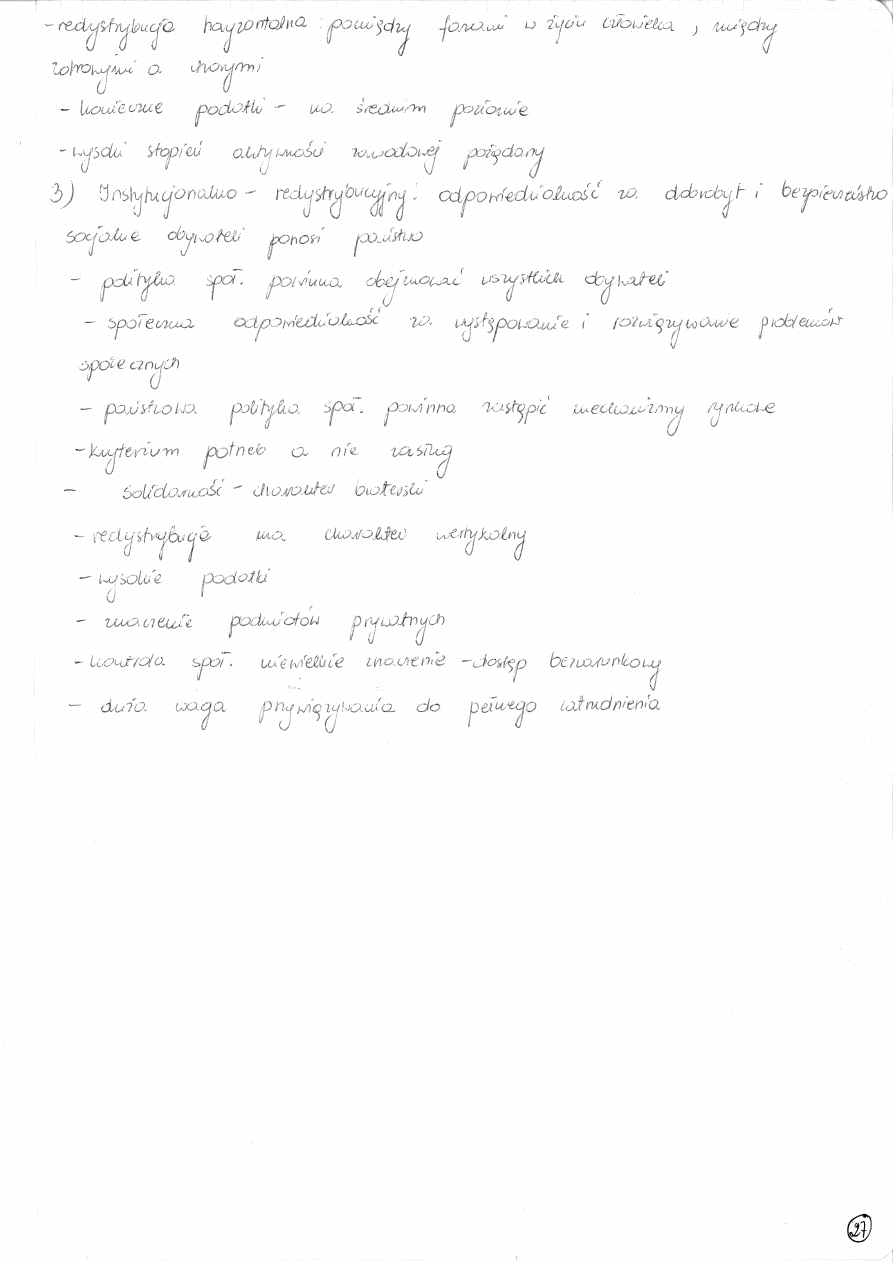 - redystrybucja horyzontalna : pomiędzy fazami w życiu człowieka, między
zdrowymi a chorymi
- konieczne podatki - na średnim poziomie
- wysoki stopień aktywności zawodowej pożądany
3) Instytucjonalno - redystrybucyjny: odpowiedzialność za dobrobyt i bezpieczeństwo
socjalne obywateli ponosi państwo
- polityka społ. powinna obejmować wszystkich obywateli
- społeczna odpowiedzialność za występowanie i rozwiązywanie problemów
społecznych
- państwowa polityka społ. powinna zastąpić mechanizmy rynkowe
- kryterium potrzeb a nie zasług
- solidarność - charakter braterski
- redystrybucja ma charakter wertykalny
- wysokie podatki
- znaczenie podmiotów prywatnych
- kontrola społ. niewielkie znaczenie - dostęp bezwarunkowy
- duża waga przywiązywania do pełnego zatrudnienia
27